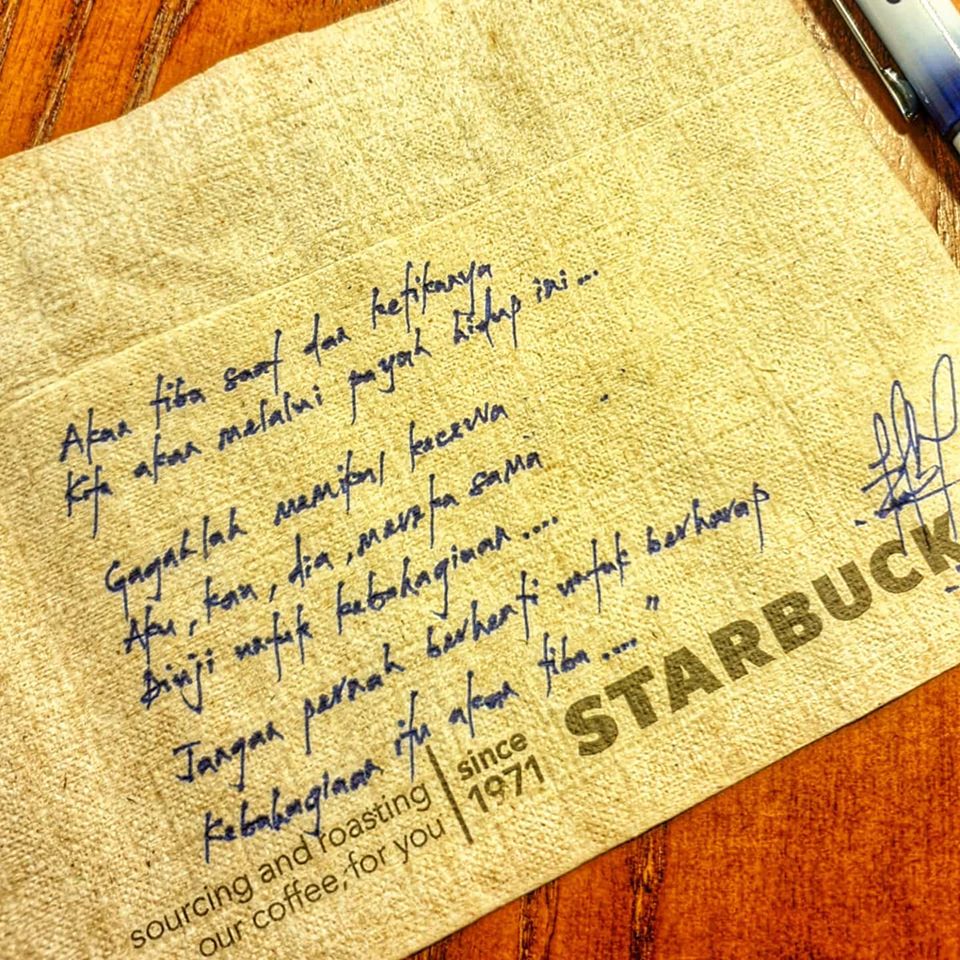 Akan tiba saat dan ketikanya
Kita akan melalui payah hidup ini...
Gagahlah memikul kecewa
Aku, kau, dia, mereka sama
Diuji untuk kebahagiaan....
Jangan pernah berhenti untuk berharap
Kebahagiaan itu akan tiba...."
sourcing and roasting
our coffee, for you
since
1971
STARBUCK